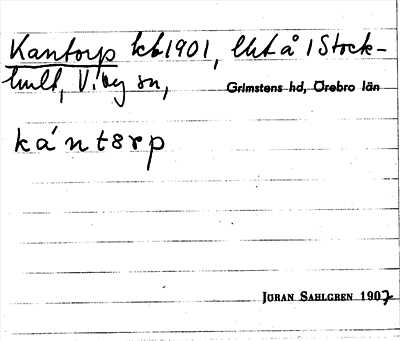 Kantorp kb 1901, lht å 1 Stock-
hult, Viby sn,
Grimstens hd, Örebro län
kántɜrp
JÖRAN SAHLGREN 1907